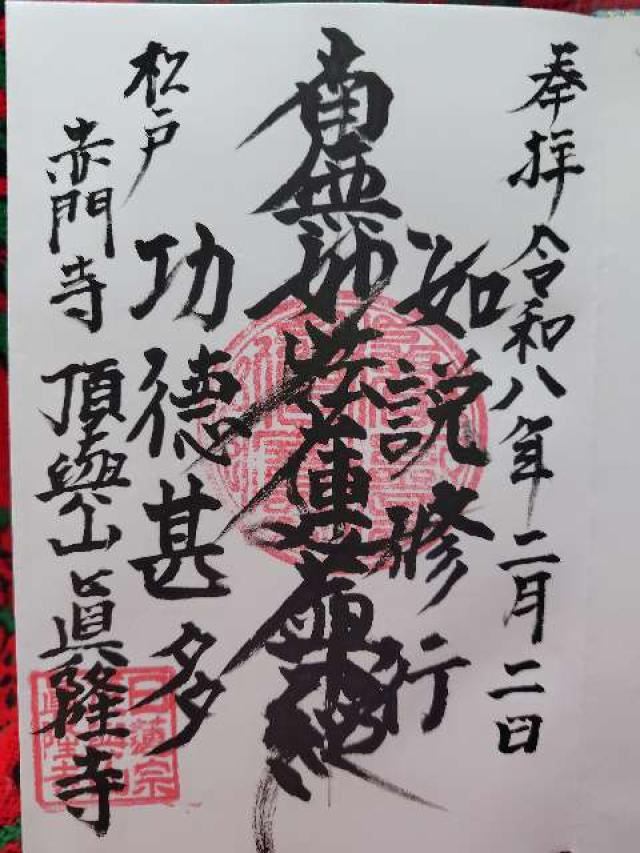 奉拝 令和八年 二月 二日
如説修行
南無妙法蓮華経
功徳甚多
松戸
赤門寺 頂輿山 眞隆寺
日蓮宗